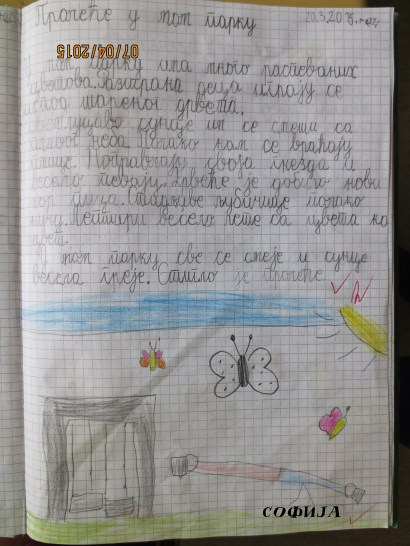 Пролеће у мом парку
20.3.20
07/04/2015
У мом парку има много расцваних
цветова. Разиграна деца играју се
испод шареног дрвета.
сунце им се смеши са
неба. Полако нам се враћају
птице. Поправљају своја гнезда и
весело певају. Дрвеће је добило нови
љубичице полако
Лептири весело лете са цвета на
цвет.
У мом парку све се смеје и сунце
весело греје. Стигло је пролеће.
СОФИЈА